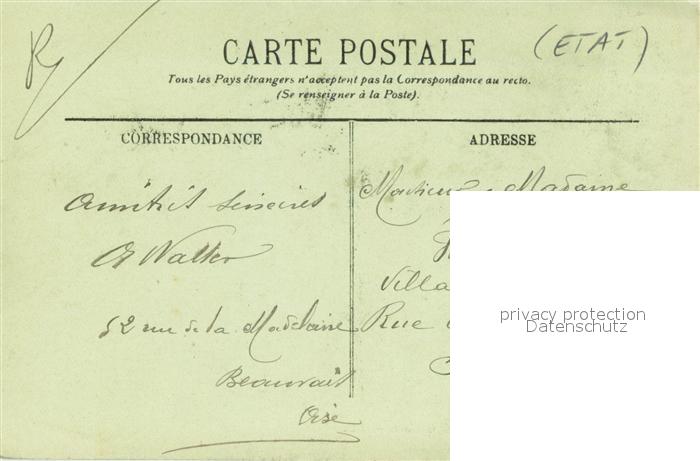 (ETAT)
CARTE POSTALE
Tous les Pays étrangers n'acceptent pas la Correspondance au recto.
(Se renseigner à la Poste).
CORRESPONDANCE
Amitiés sincères
Walter
52 rue de la Madelaine
Beauvais
Oise
ADRESSE
Monsieur Madame
Villa
Rue
privacy protection
Datenschutz